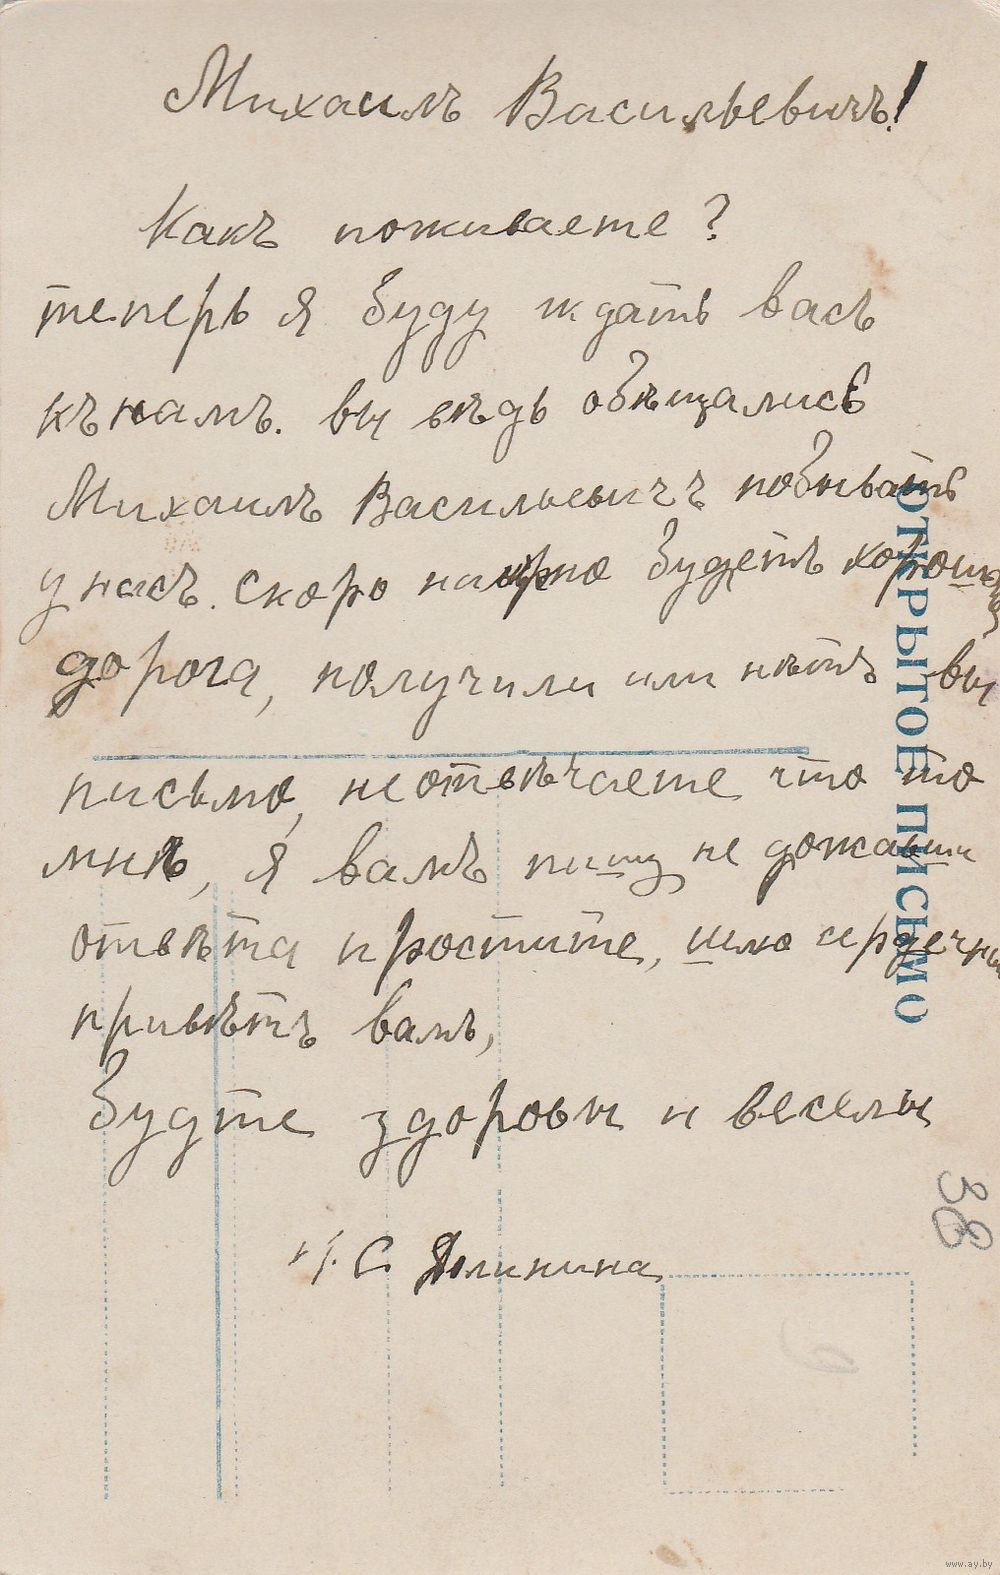 Михаилъ Васильевичъ!
Какъ поживаете?
теперь я буду ждать васъ
къ намъ. вы вѣдь обѣщались
Михаилъ Васильевичъ побывать
у насъ. скоро будетъ хорошая
дорога, получили или нѣтъ вы
письмо, не отвѣчаете что то
мнѣ, я вамъ пишу не дожавши
отвѣта простите, шлю сердечный
привѣтъ вамъ,
Будте здоровы и веселы
С Долинина
ОТКРЫТОЕ ПИСЬМО
38
www.ay.by